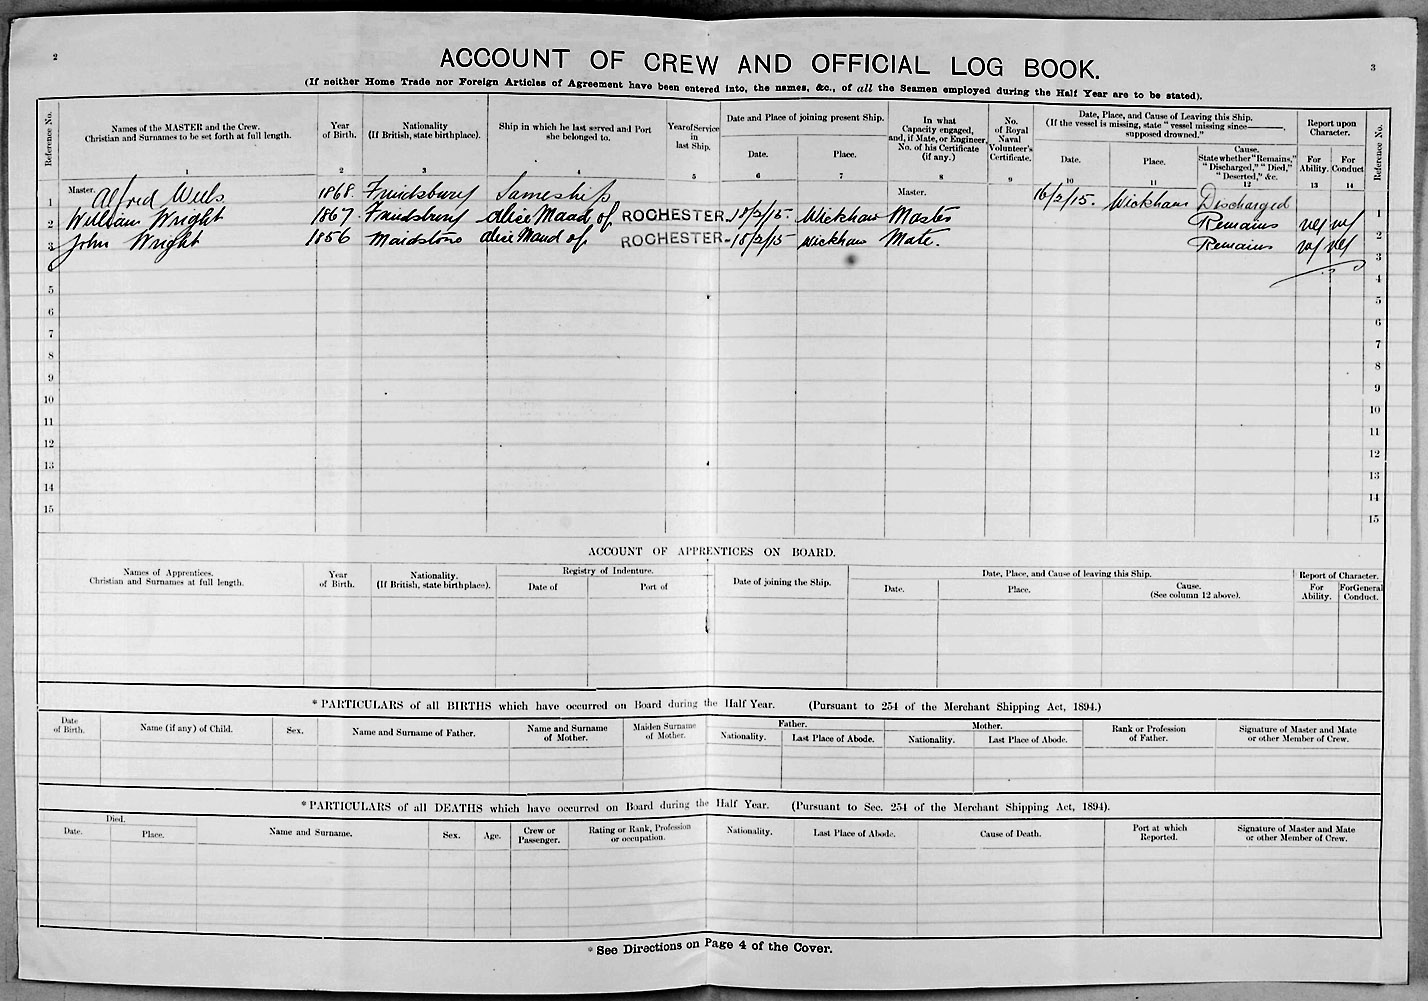 2
3
ACCOUNT OF CREW AND OFFICIAL LOG BOOK.
(If neither Home Trade nor Foreign Articles of Agreement have been entered into, the names, &c., of all the Seamen employed during the Half Year are to be stated).
Reference No. Names of the MASTER and the Crew. Christian and Surnames to be set forth at full length. Year of Birth. Nationality (If British, state birthplace). Ship in which he last served and Port she belonged to. Year of Service in last Ship. Date and Place of joining present Ship. Date. Place. In what Capacity engaged, and, if Mate, or Engineer, No. of his Certificate (if any.) No. of Royal Naval Volunteer's Certificate. Date, Place, and Cause of Leaving this Ship. (If the vessel is missing, state "vessel missing since———, supposed drowned." Date. Place. Cause. State whether "Remains," "Discharged," "Died," "Deserted," &c. Report upon Character. For Ability. For Conduct Reference No.
1 2 3 4 5 6 7 8 9 10 11 12 13 14
1 Master. Alfred Wells 1868. Frindsbury Same ship Master. 16/2/15. Wickham Discharged 1
2 William Wright 1867. Frindsbury Alice Maud of ROCHESTER. 18/2/15. Wickham Master Remains vg vg 2
3 John Wright 1856 Maidstone Alice Maud of ROCHESTER. 18/2/15 Wickham Mate. Remains vg vg 3
4 4
5 5
6 6
7 7
8 8
9 9
10 10
11 11
12 12
13 13
14 14
15 15
ACCOUNT OF APPRENTICES ON BOARD.
Names of Apprentices. Christian and Surnames at full length. Year of Birth. Nationality. (If British, state birthplace). Registry of Indenture. Date of Port of Date of joining the Ship. Date, Place, and Cause of leaving this Ship. Date. Place. Cause. (See column 12 above). Report of Character. For Ability. For General Conduct.
* PARTICULARS of all BIRTHS which have occurred on Board during the Half Year. (Pursuant to 254 of the Merchant Shipping Act, 1894.)
Date of Birth. Name (if any) of Child. Sex. Name and Surname of Father. Name and Surname of Mother. Maiden Surname of Mother. Father. Nationality. Last Place of Abode. Mother. Nationality. Last Place of Abode. Rank or Profession of Father. Signature of Master and Mate or other Member of Crew.
* PARTICULARS of all DEATHS which have occurred on Board during the Half Year. (Pursuant to Sec. 254 of the Merchant Shipping Act, 1894).
Died. Date. Place. Name and Surname. Sex. Age. Crew or Passenger. Rating or Rank, Profession or occupation. Nationality. Last Place of Abode. Cause of Death. Port at which Reported. Signature of Master and Mate or other Member of Crew.
* See Directions on Page 4 of the Cover.